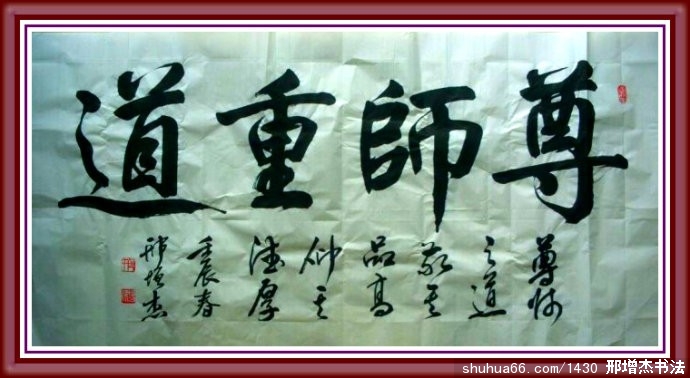 尊師重道
尊师
之道
敬其
品高
仰其
德厚
壬辰春
邢增杰
shuhua66.com/1430 邢增杰书法